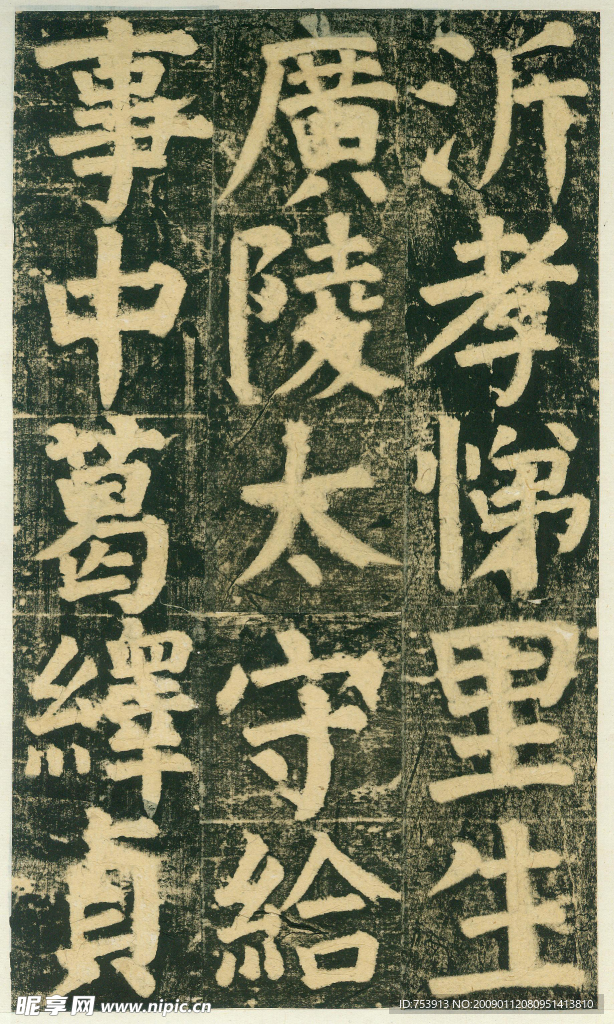 沂孝悌里生
廣陵太守給
事中葛繹貞
昵享网 www.nipic.cn
ID:753913 NO:20090112080951413810